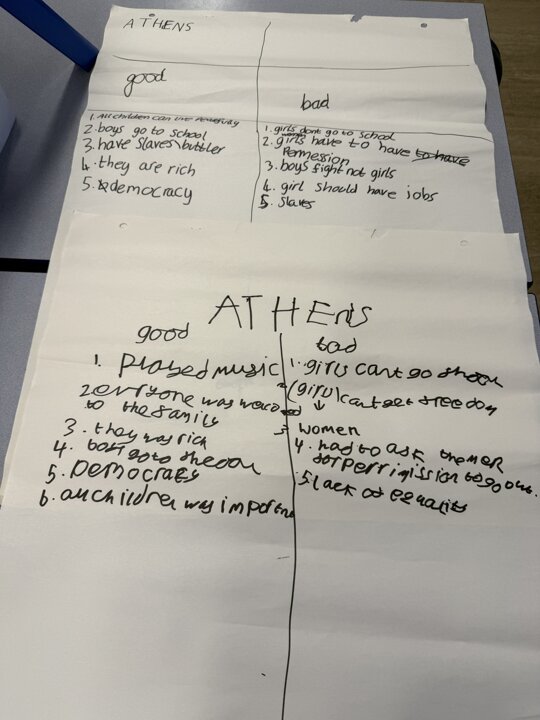 ATHENS
good
1. All children can use
2. boys go to school
3. have slaves/buttler
4. they are rich
5. democracy
bad
1. girls dont go to school
2. girls have to have to have
Permession
3. boys fight not girls
4. girl should have jobs
5. slaves
ATHEnis
good
1. Played music
2. everyone was
to the family
3. they was rich
4. boys go to
5. Democrasy
6. all children was
bad
1. girls cant go
(girls) cant get freedom
3 women
4. had to ask the men
for to go out.
5. lack of equality